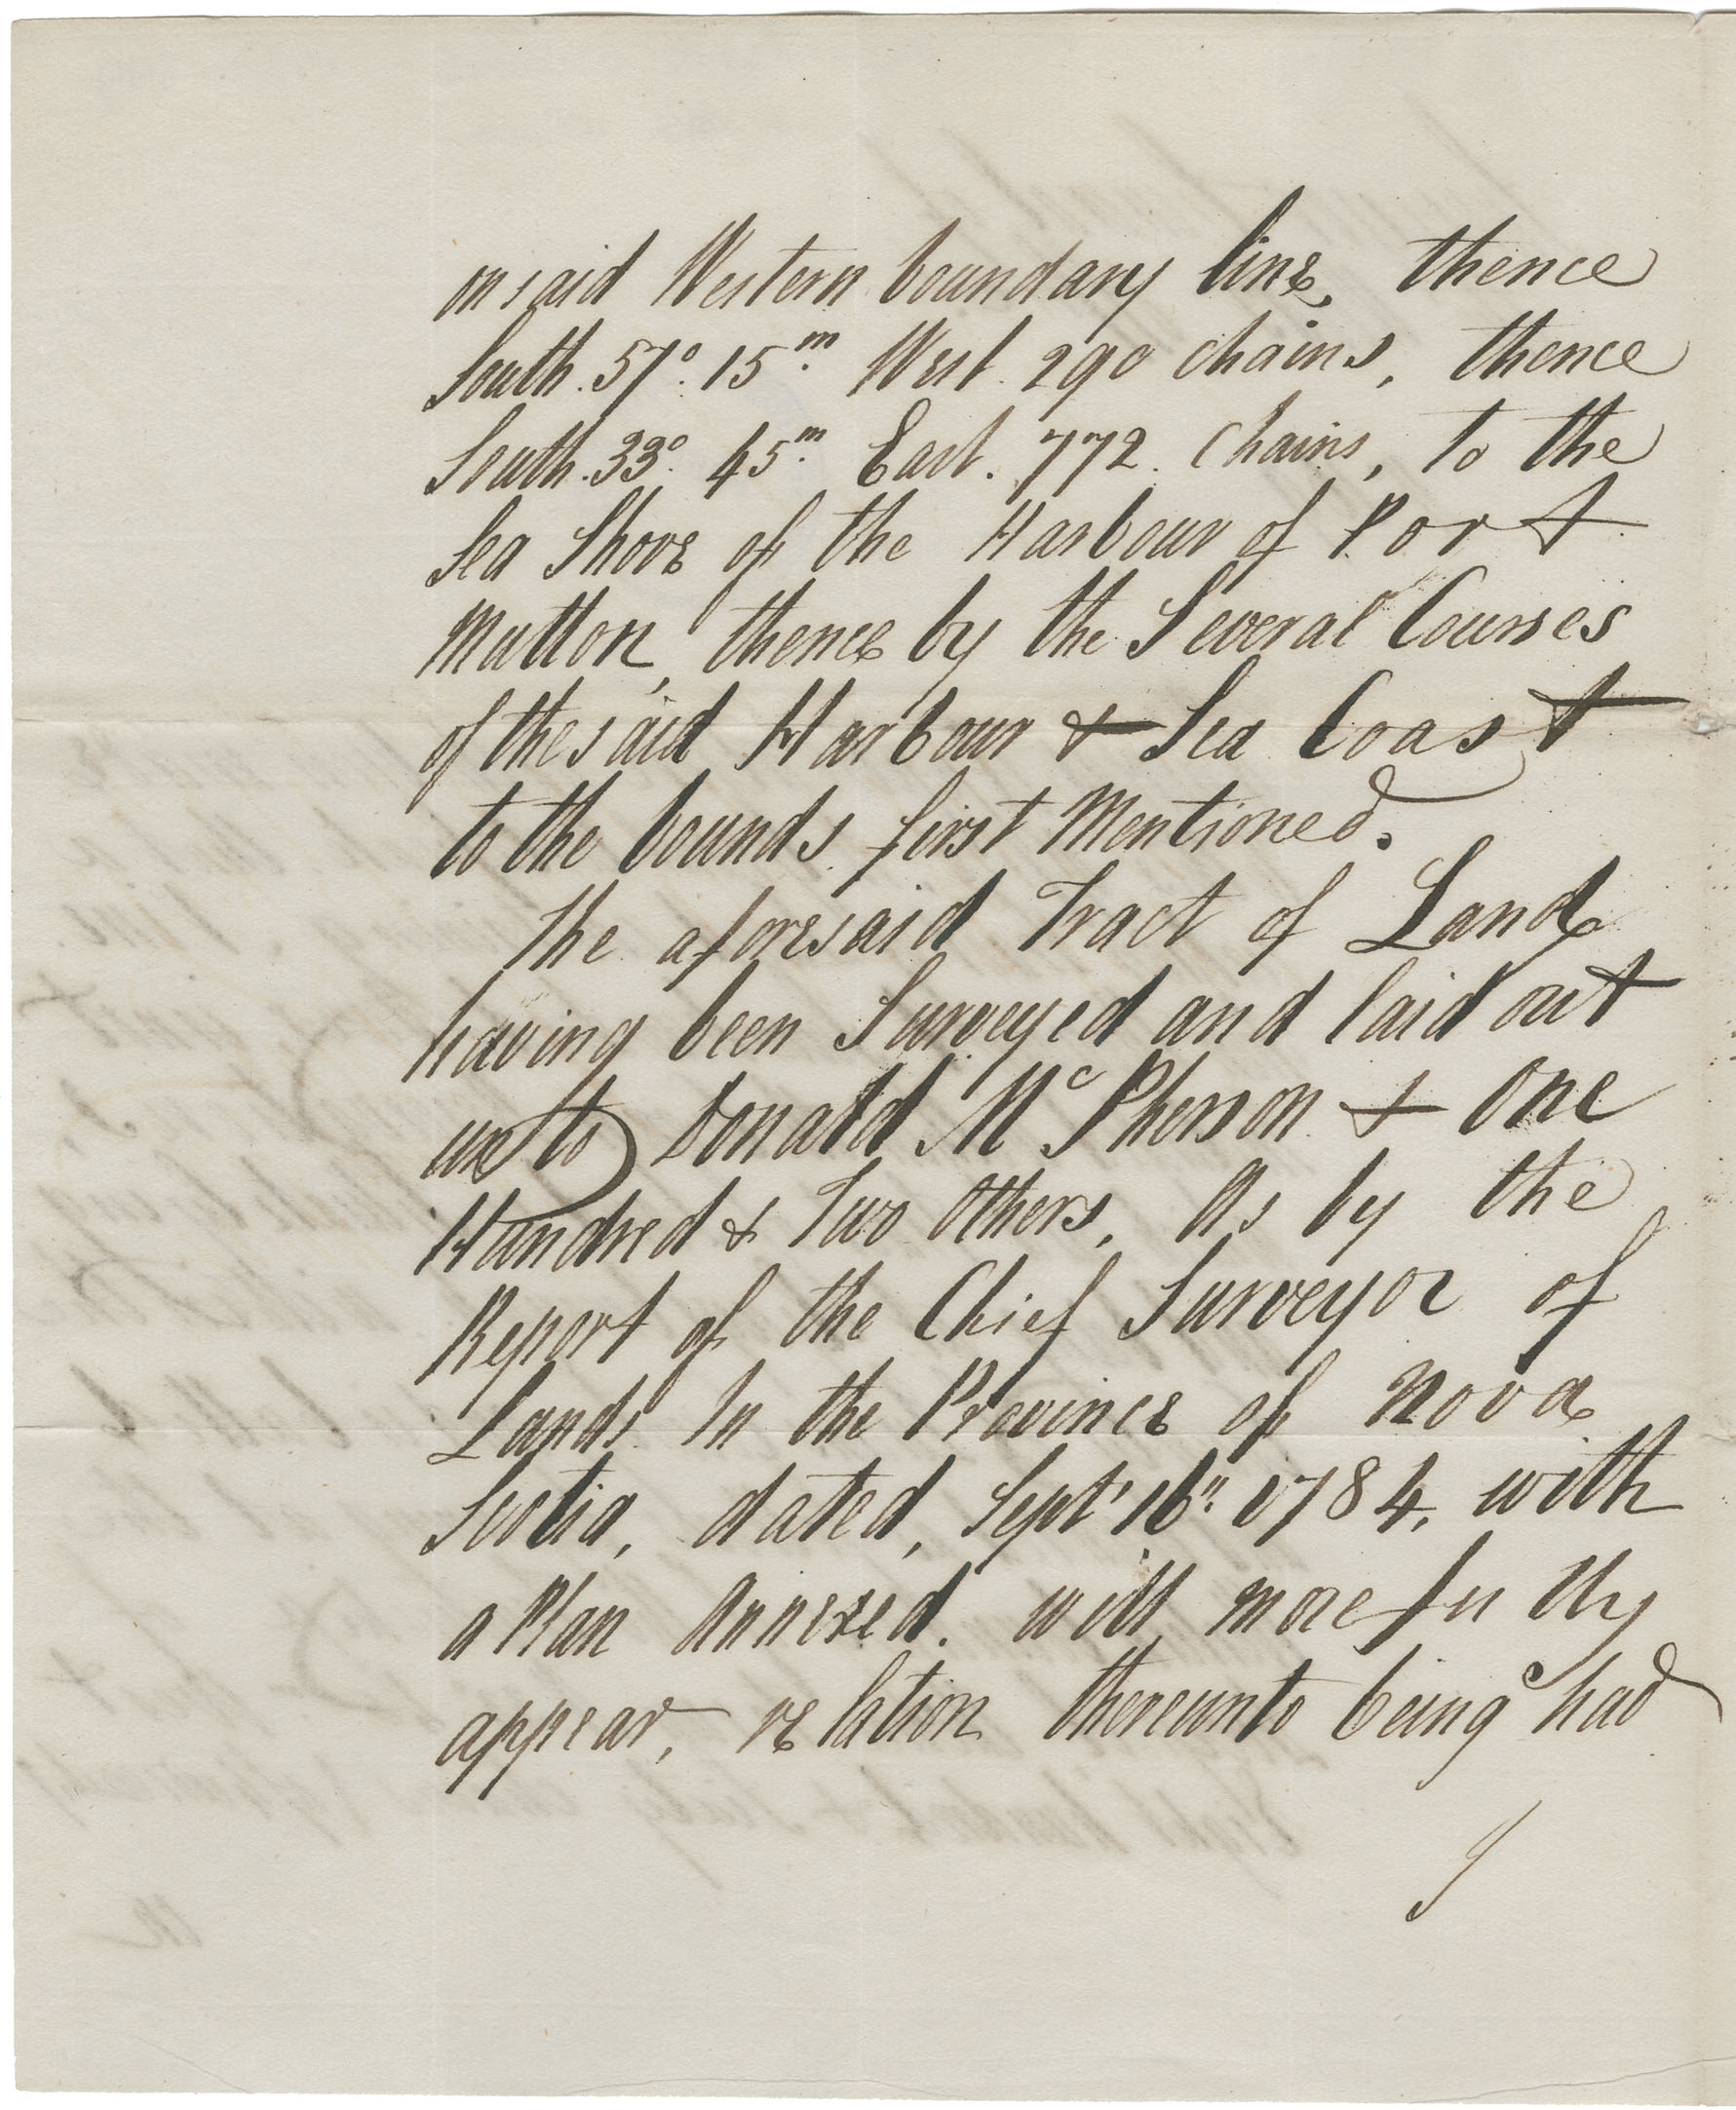 on said Western boundary line, thence
South. 57°. 15.ᵐ West. 290 Chains, thence
South. 33°. 45.ᵐ East. 772. Chains, to the
Sea Shore of the Harbour of Port
Mutton, thence by the Several Courses
of the said Harbour & Sea Coast
to the bounds first Mentioned.
The aforesaid Tract of Land
having been Surveyed and laid out
unto Donald Mᶜ Pherson & One
Hundred & Two Others, As by the
Report of the Chief Surveyor of
Lands In the Province of Nova
Scotia, dated, Septʳ 16ᵗʰ 1784, with
a Plan Annexed. will more fully
appear, relation thereunto being had